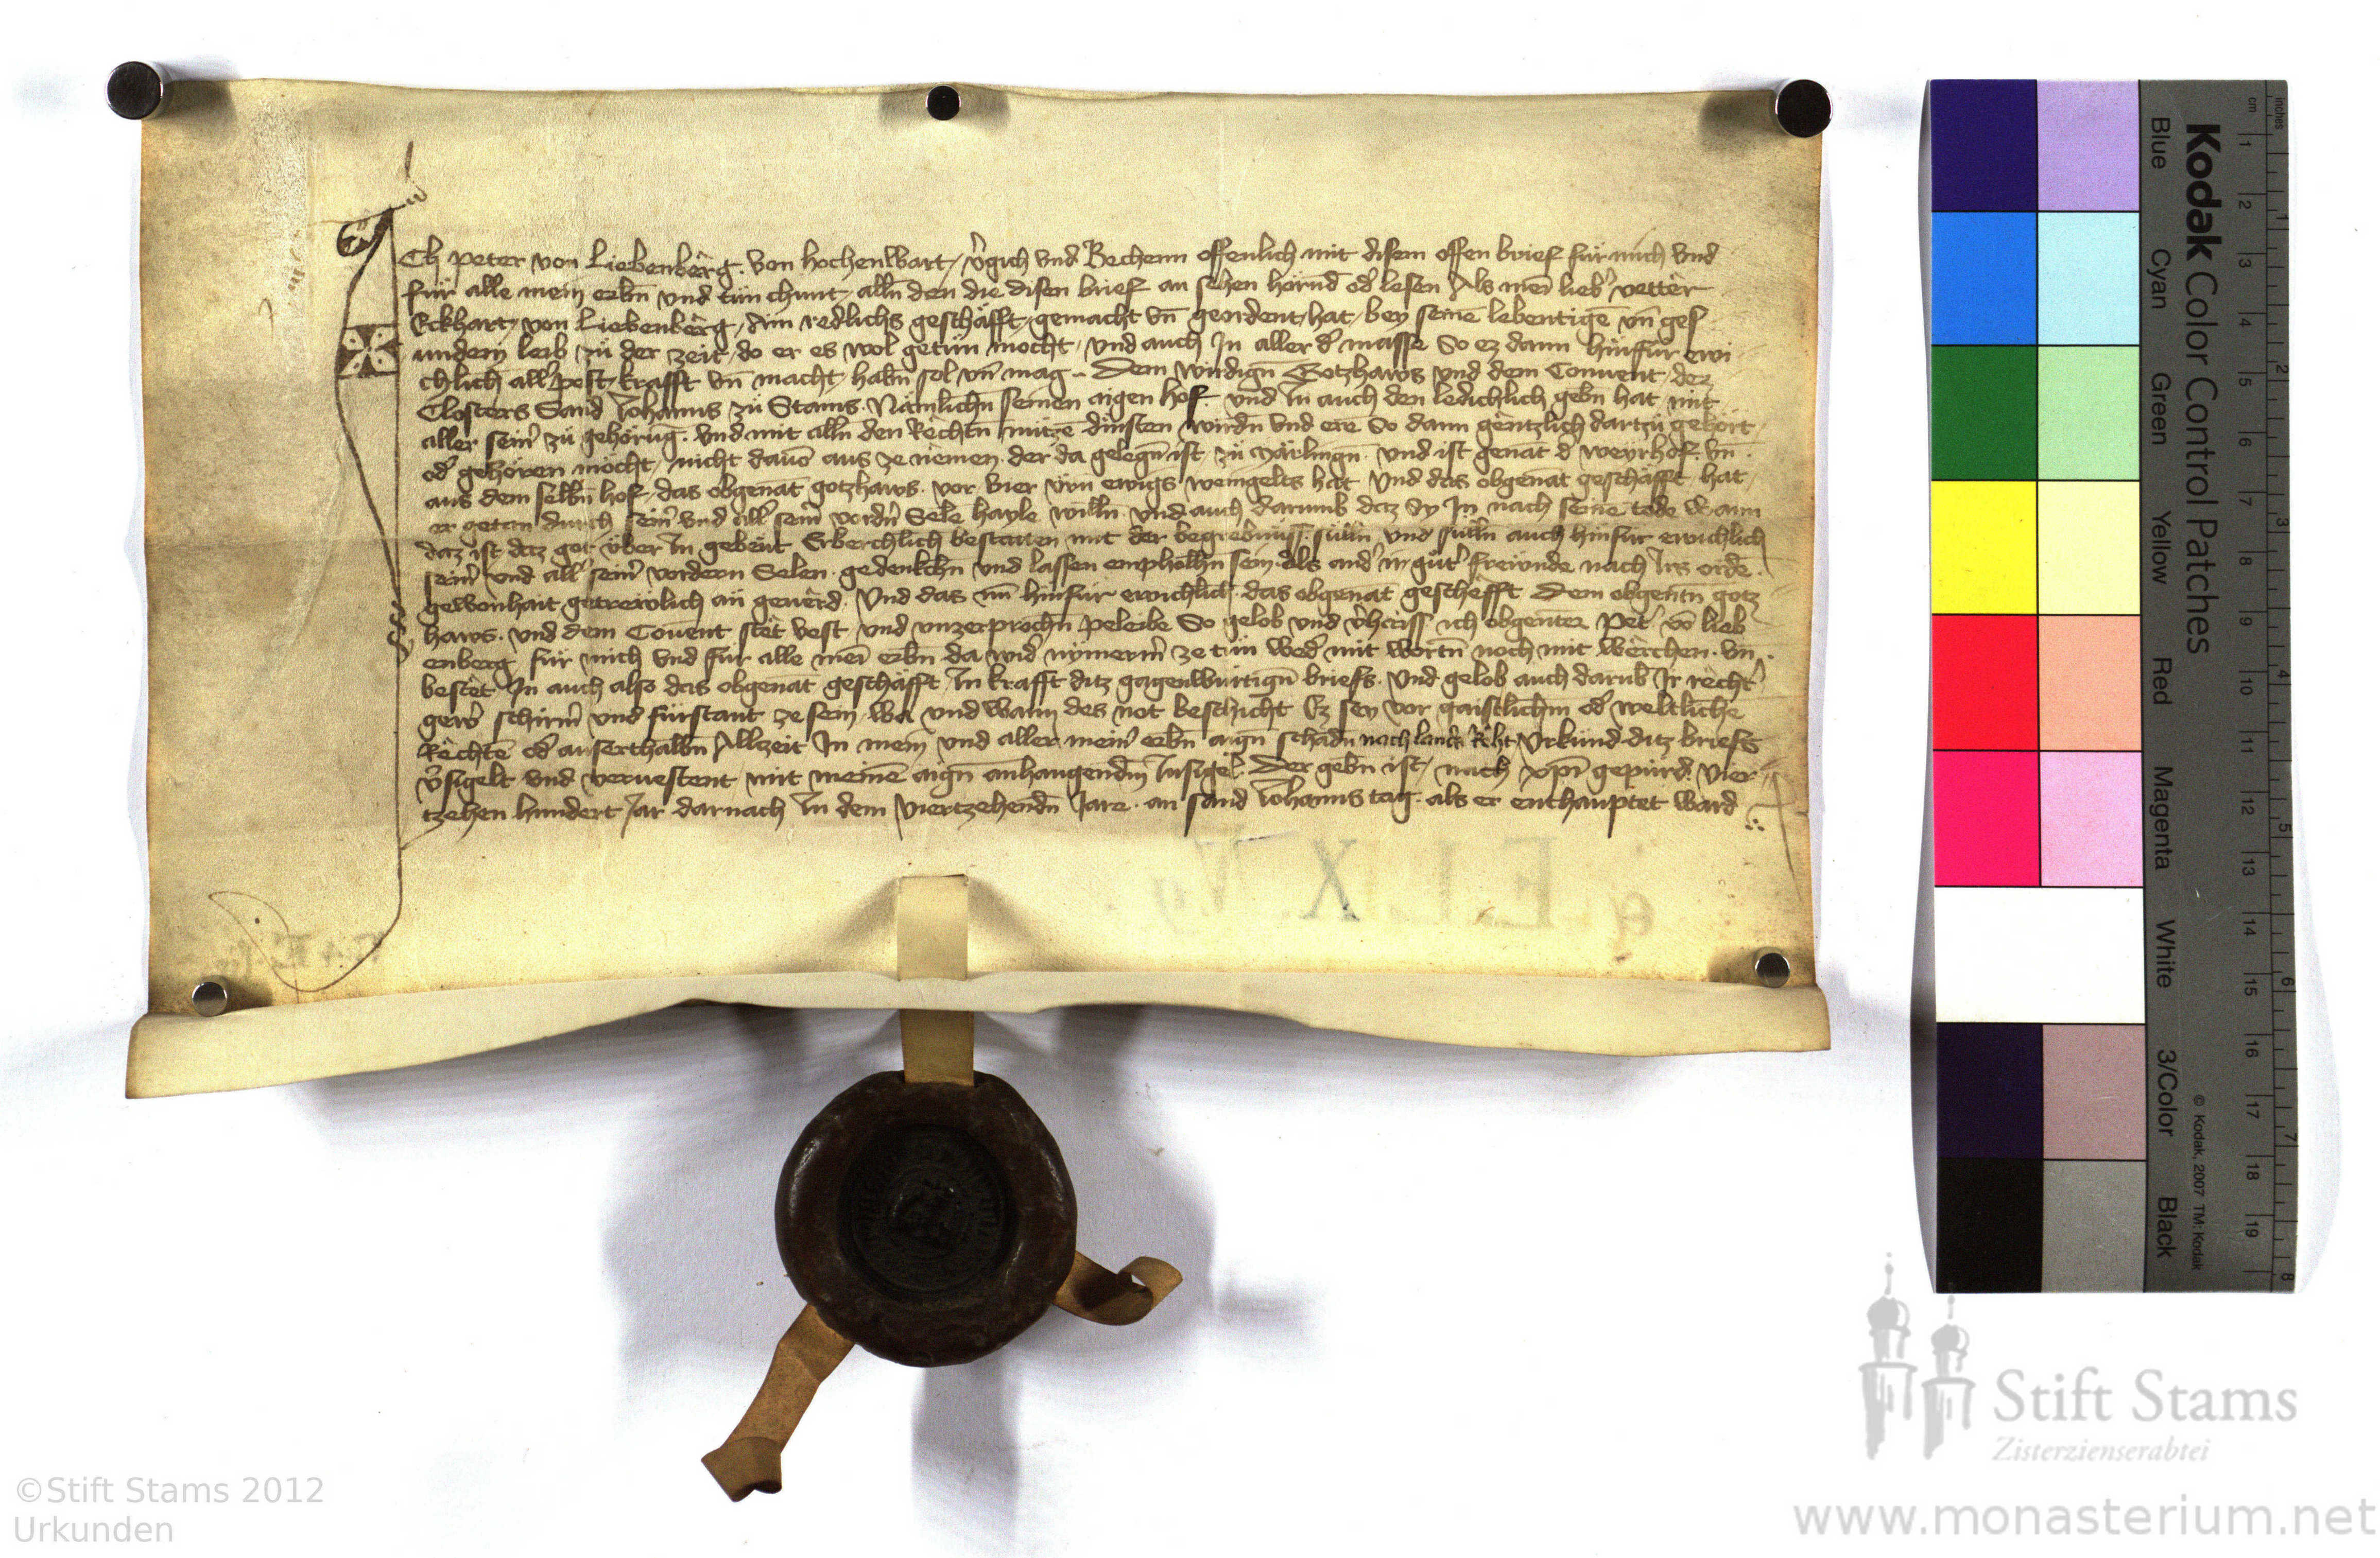 Ich peter von Liebenberg. von hochenwart, v̓gich vnd Bechenn offenlich mit disem offen brief fur mich vnd
für alle mein erbn̄ vnd tün chunt, alln̄ den die disen brief an sehen hörnd̄ od̓ lesen Als mei̅ lieb̓ vetter
Eckhart, von Liebenberg, Ain redlichs geschäfft, gemacht vn̄ geordent, hat, bey seine̅ lebentige̅ vn̄ ges
undem leib zü der zeit, do er es wol getün mocht, vnd auch In aller d̓ masse So ez dann hinfür ewi
chlich all̓ pest, krafft vn̄ macht, habn̄ sol vn̄ mag Dem wirdign̄ Gotzhaws vnd dem Conuent, dez
Closters Sand Johanns zü Stams. Nämlichn̄ seinen aigen hof. vnd In auch den ledichlich gebn̄ hat mit
aller sein̓ zü gehörūg. vnd mit alln̄ den Rechtn̄ nütze dinsten wirdn̄ vnd ere So dann gentzlich dartzü gehört,
od̓ gehören möcht, nicht dauo̅ aus ze nemen. der da gelegn̄ ist zü Märlingn̄. vnd ist gena̅t d̓ weyrhof. vn̄
aus dem selbn̄ hof, das obgena̅t gotzhaws. vor vier vrn̄ ewigs weingelts hat vnd das obgena̅t geschäfft hat,
er getan durch sein̓ vnd all̓ sein̓ vordn̓ Sele hayle willn̄ vnd auch darumb daz Sy In nach seine̅ tode Wann
daz ist daz got vber In gebeut Erberchlich bestatten mit der begrebnüss. sülln̄ vnd sülln̄ auch hinfür ewichlich
sein̓ vnd all̓ sein̓ vordern Selen. gedenkchn̄ vnd lassen enpholhn̄ sein. Als and̓ ir güt̓ frewnde nach Irs orde̅.
gewonhait getrewlich an geuerd. Vnd das nu̅ hinfür ewichlich das obgena̅t geschefft Dem obgentn̄ gotz
haws. vnd dem Co̅uent stet vest, vnd vnzerprochn̄ peleibe So gelob vnd v̓haiss ich obgenter Pet̓ vo̅ lieb
enberg für mich vnd für alle mei̅ erbn̄ da wid̓ nymerm̓ ze tün wed̓ mit wortn̄ noch mit werchen. vn̄
bestet In auch also das obgena̅t geschäfft, In krafft ditz gagenwürtign̄ briefs. Vnd gelob auch daru̅b Ir recht̓
gew̓ schirm̓ vnd fürstant ze sein, wa vnd wann des not beschicht Ez sey vor gaistlichm od̓ weltliche̅
Rechte̅ od̓ auserthalbn̄ Allzeit In mein̄ vnd aller mein̓ erbn̄ aign̄ schadn̄ nach lands Rēht Vrkünd ditz briefs
v̓sigelt vnd veruestent, mit meine̅ aign̄ anhangendm̄ Insigel. Der gebn̄ ist, nach xp̄i gepürd. vier
tzehen hundert Jar darnach In dem Viertzehendn̄ Jare. an sand Johanns tag. als er enthauptet ward
Kodak Color Control Patches
Blue Cyan Green Yellow Red Magenta White 3/Color Black
© Kodak, 2007 TM: Kodak
inches 1 2 3 4 5 6 7 8
cm 1 2 3 4 5 6 7 8 9 10 11 12 13 14 15 16 17 18 19
Stift Stams
Zisterzienserabtei
©Stift Stams 2012
Urkunden
www.monasterium.net